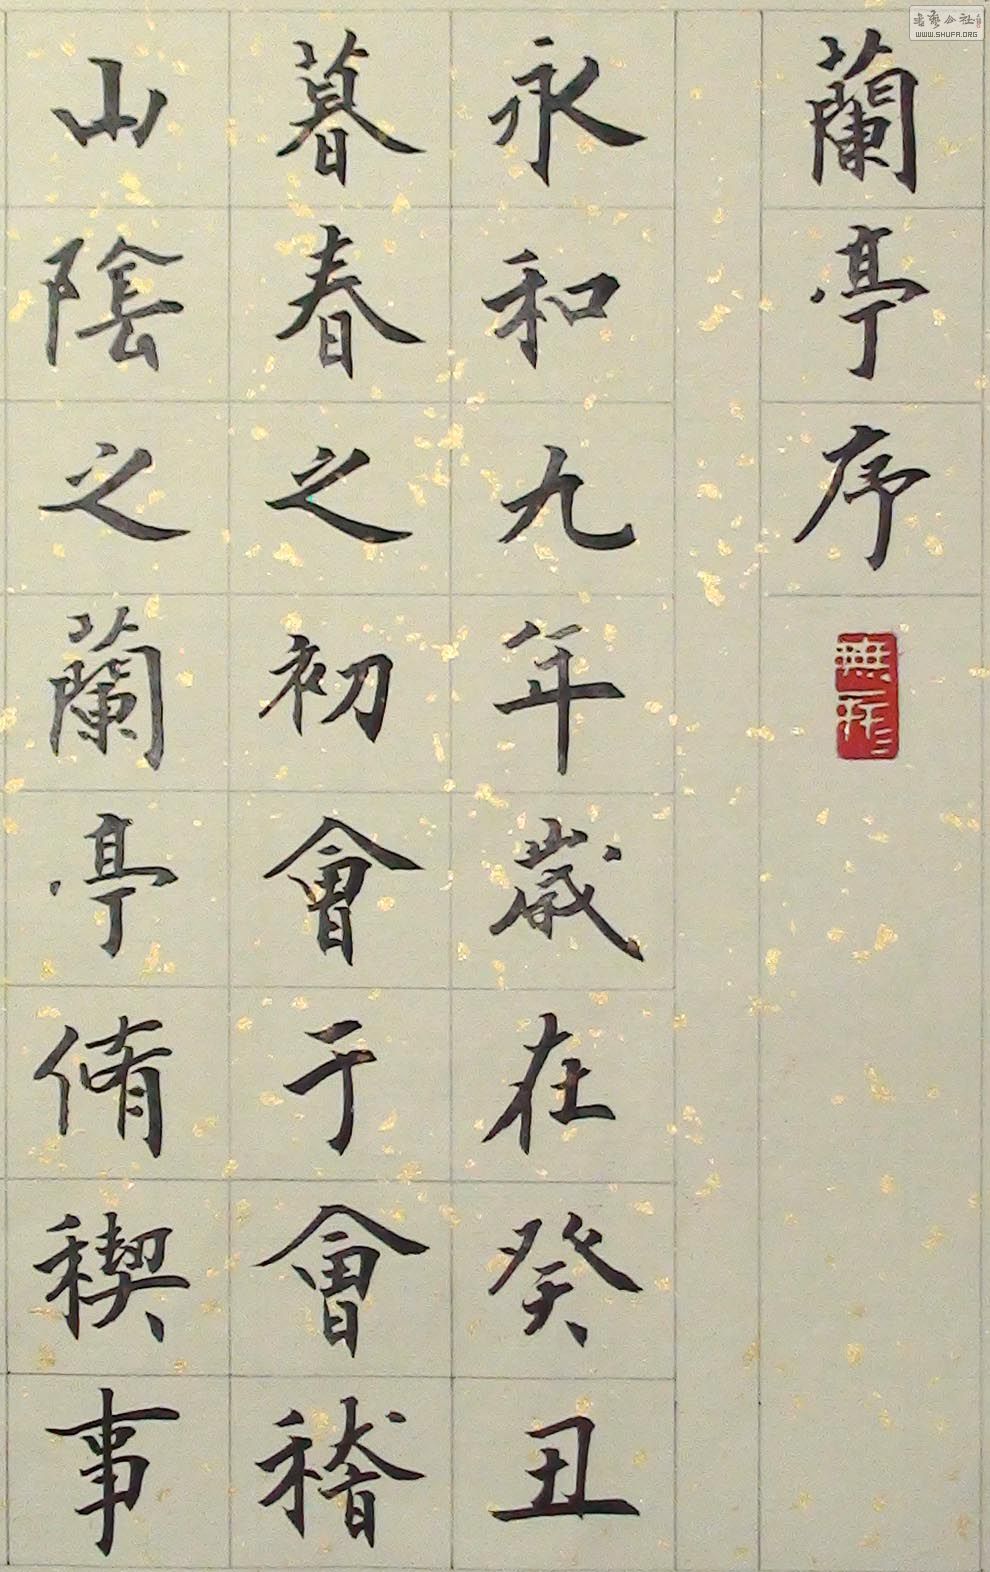 蘭亭序
永和九年歲在癸丑
暮春之初會于會稽
山陰之蘭亭脩稧事
WWW.SHUFA.ORG